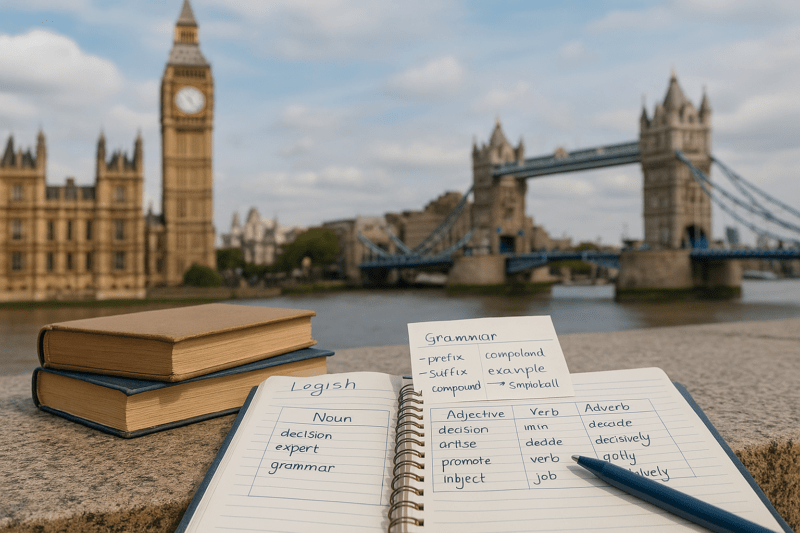 Grammar
-prefix compoland
-Suffix example
compound → Smplokall
Logish
Noun
decision
expert
grammar
Adjective Verb Adverb
decision imin decade
artise dedde decisively
promote verb gotly
inbject job